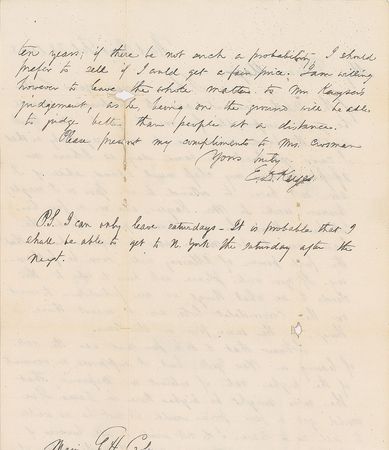 ten years; if there be not such a probability, I should
prefer to sell if I could get a fair price. I am willing
however to leave the whole matter to Mr Kayser's
judgement, as he being on the ground will be able
to judge better than people at a distance.
Please present my compliments to Mrs.
Yours truly
E. D. Keyes
P.S. I can only leave saturdays - It is probable that I
shall be able to get to N. York the saturday after the
next.